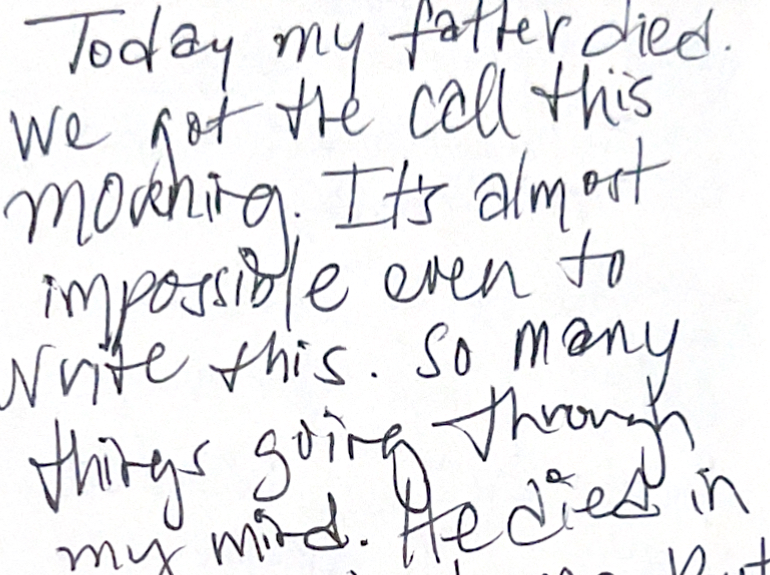 Today my father died.
We got the call this
morning. It's almost
impossible even to
write this. So many
things going through
my mind. He died in
But